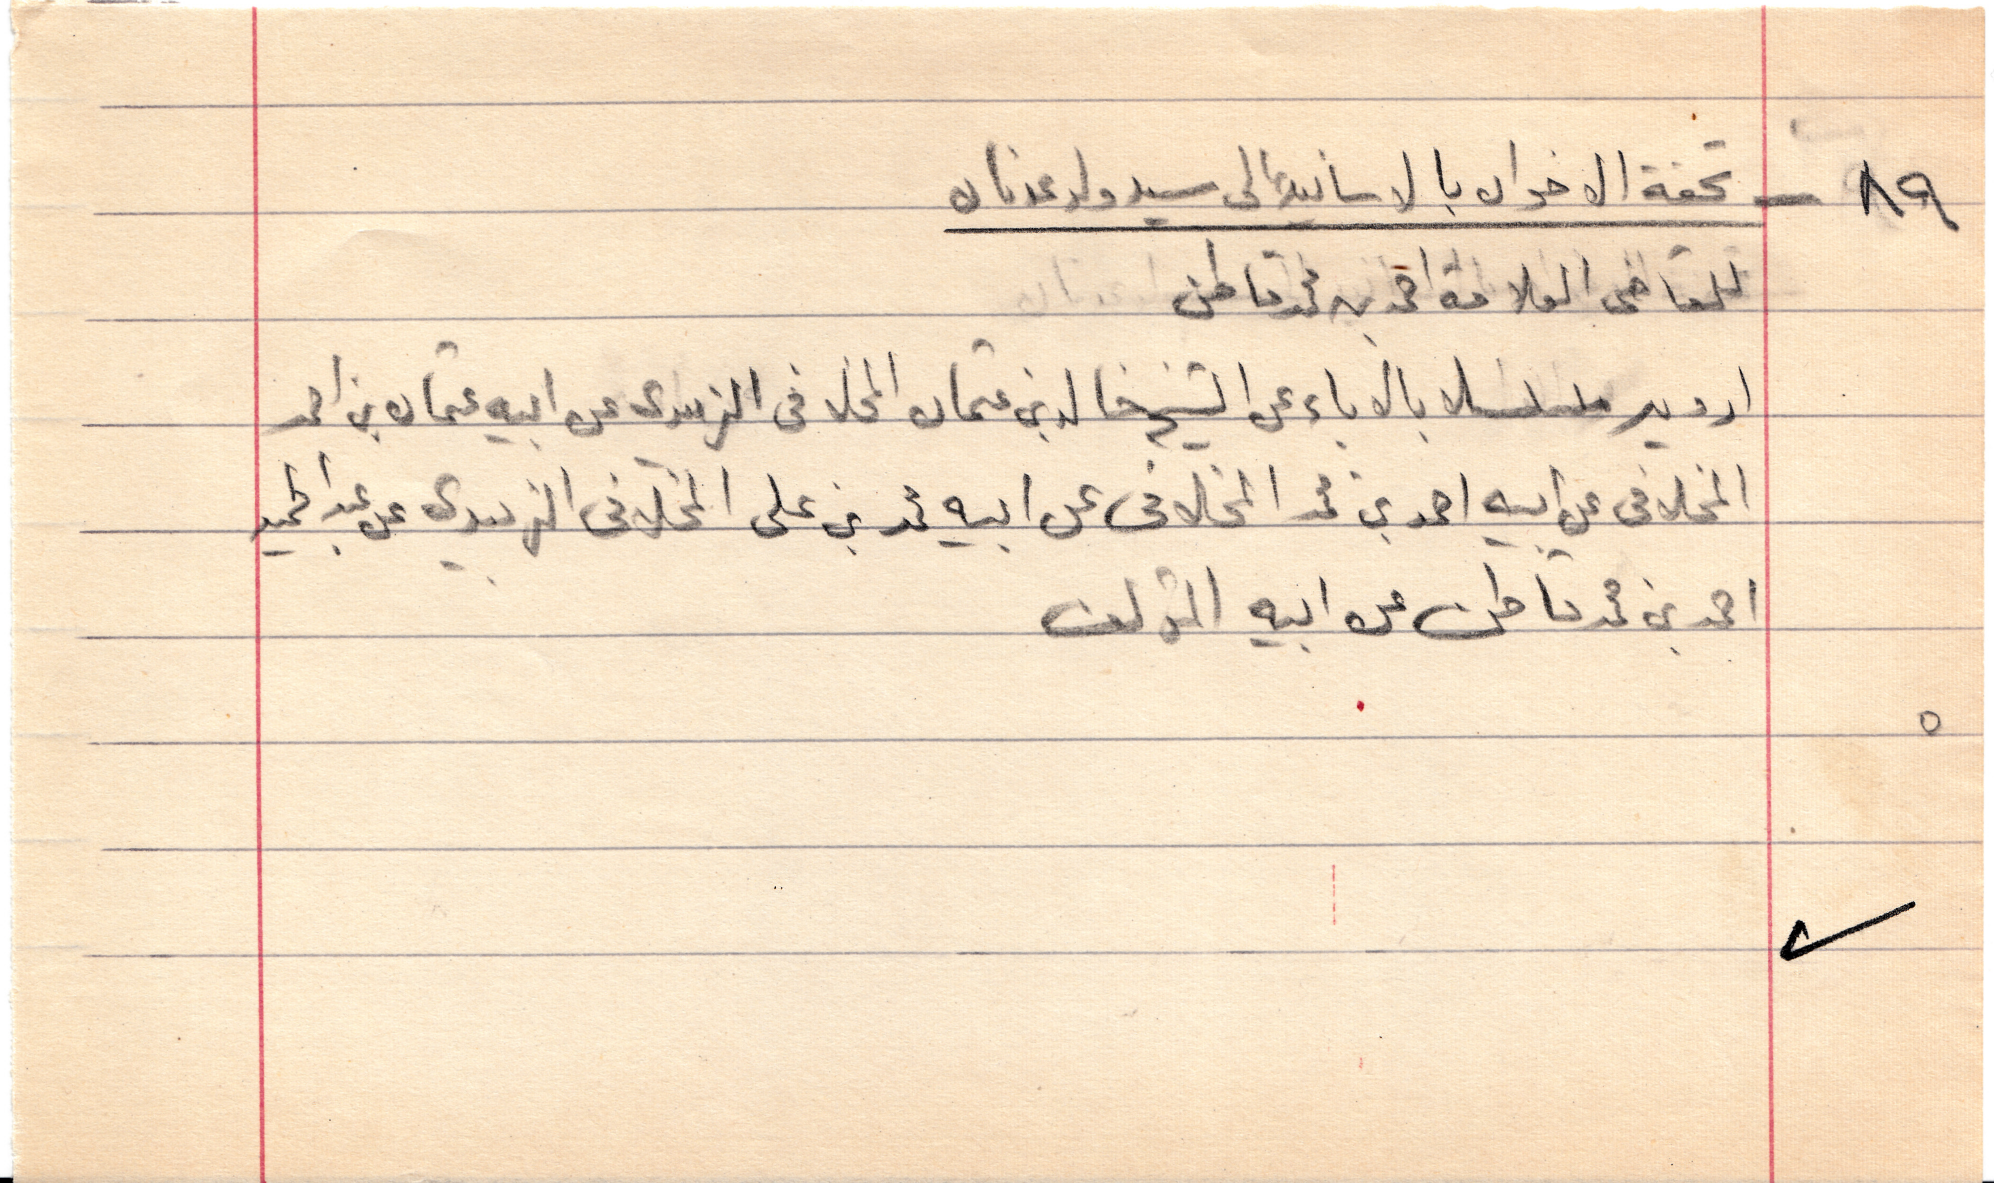 ٨٩ - تحفة الاخوان بالاسانيد الى سيد ولد عدنان
للقاضى العلامة احمد بن محمد قاطن
ارويه مسلسلا بالاباء عن الشيخ خالد بن عثمان المخلافى الزبيدى عن ابيه عثمان بن احمد
المخلافى عن ابيه احمد بن محمد المخلافى عن ابيه محمد بن على المخلافى الزبيدى عن عبد الحميد
احمد بن محمد قاطن عن ابيه المؤلف